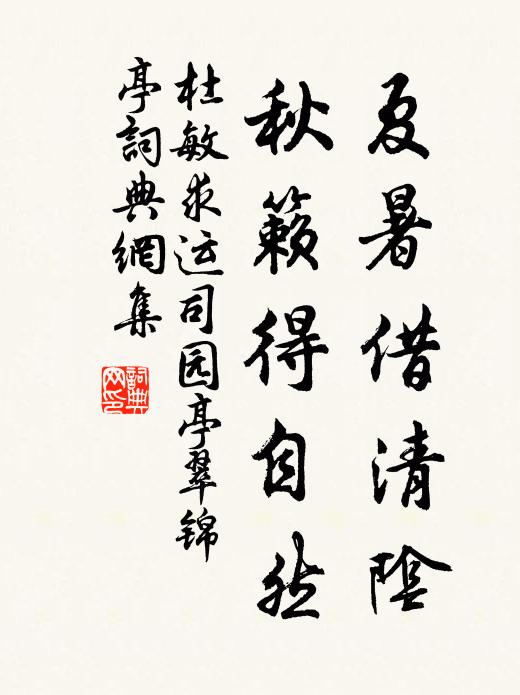 夏暑借清陰
秋籟得自然
杜敏求运司园亭翠锦
亭詞典網集
詞典网印